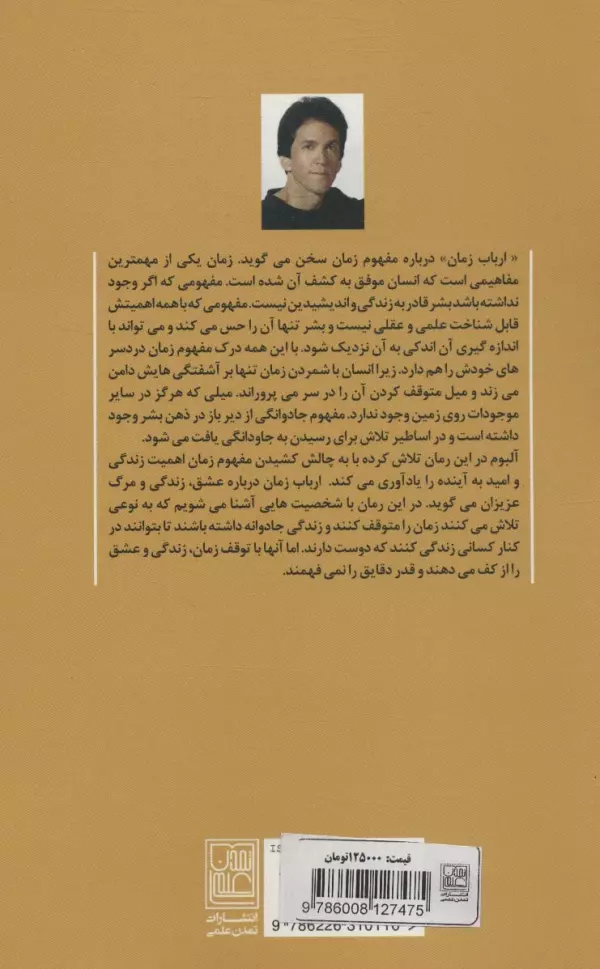 « ارباب زمان» درباره مفهوم زمان سخن می گوید. زمان یکی از مهمترین
مفاهیمی است که انسان موفق به کشف آن شده است. مفهومی که اگر وجود
نداشته باشد بشر قادر به زندگی و اندیشیدین نیست. مفهومی که با همه اهمیتش
قابل شناخت علمی و عقلی نیست و بشر تنها آن را حس می کند و می تواند با
اندازه گیری آن اندکی به آن نزدیک شود. با این همه درک مفهوم زمان دردسر
های خودش را هم دارد. زیرا انسان با شمردن زمان تنها بر آشفتگی هایش دامن
می زند و میل متوقف کردن آن را در سر می پروراند. میلی که هرگز در سایر
موجودات روی زمین وجود ندارد. مفهوم جادوانگی از دیر باز در ذهن بشر وجود
داشته است و در اساطیر تلاش برای رسیدن به جاودانگی یافت می شود.
آلبوم در این رمان تلاش کرده با به چالش کشیدن مفهوم زمان اهمیت زندگی
و امید به آینده را یادآوری می کند. ارباب زمان درباره عشق، زندگی و مرگ
عزیزان می گوید. در این رمان با شخصیت هایی آشنا می شویم که به نوعی
تلاش می کنند زمان را متوقف کنند و زندگی جادوانه داشته باشند تا بتوانند در
کنار کسانی زندگی کنند که دوست دارند. اما آنها با توقف زمان، زندگی و عشق
را از کف می دهند و قدر دقایق را نمی فهمند.
قیمت: ۱۲۵۰۰۰تومان
9 786008 127475
تمدن
علمی
انتشارات
تمدن علمی